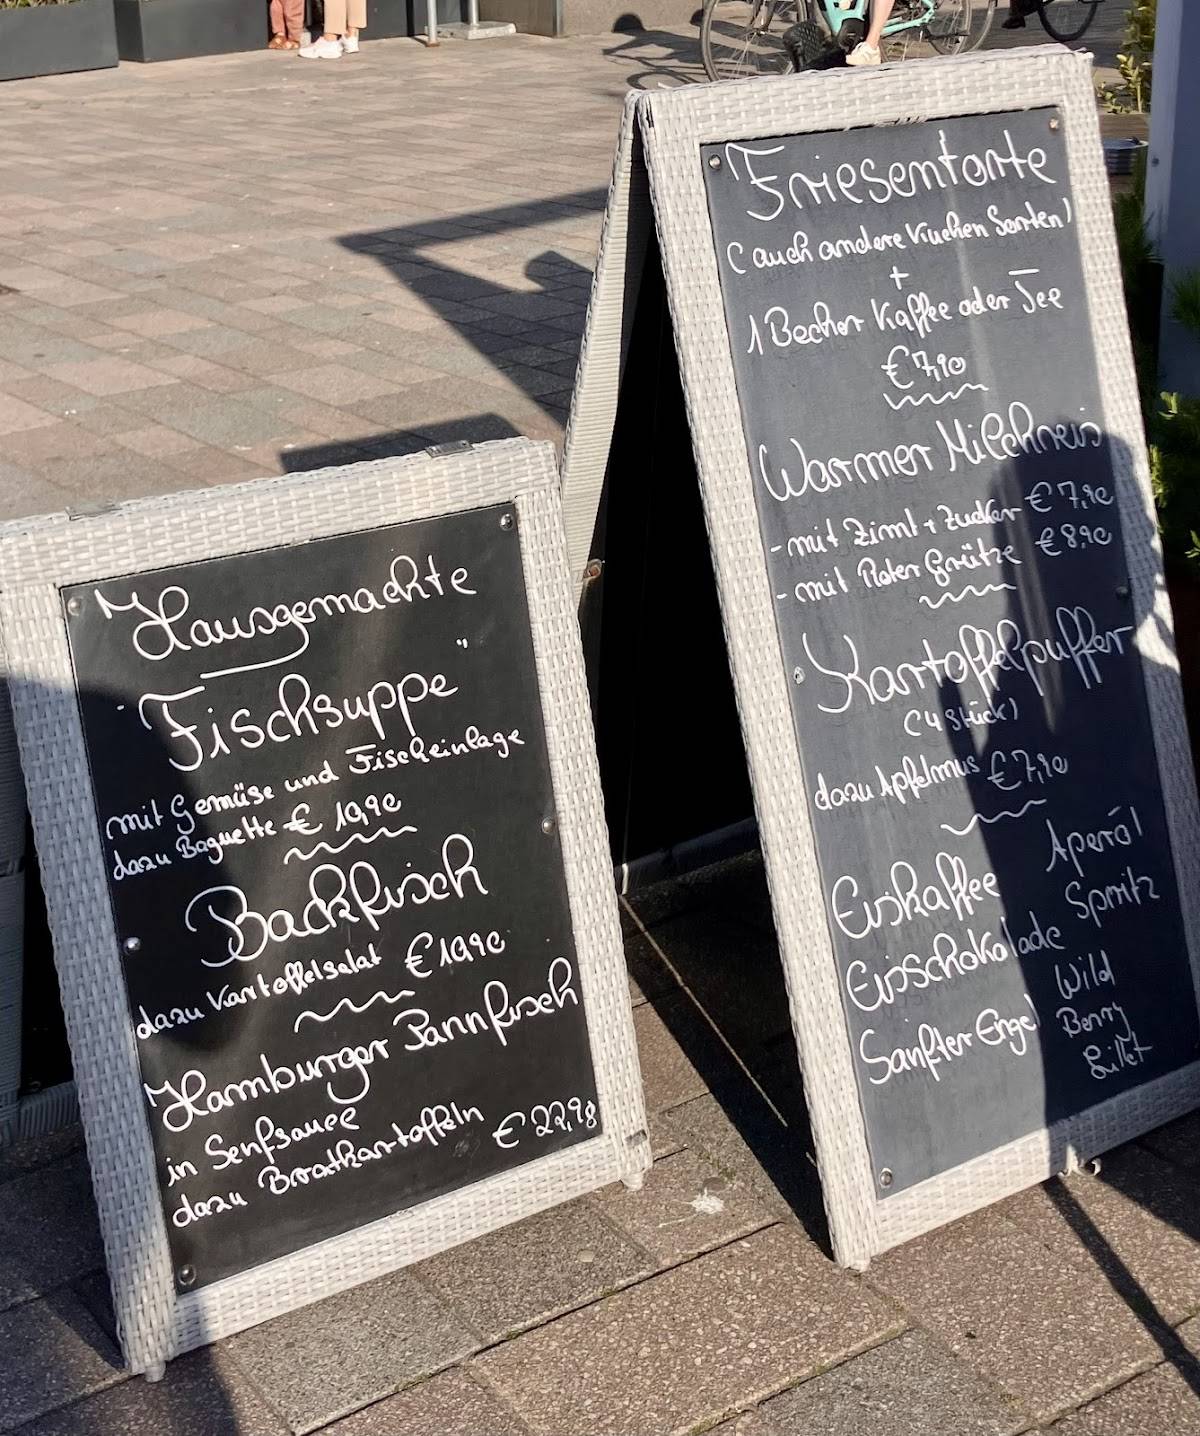 Hausgemachte
"Fischsuppe"
mit Gemüse und Fischeinlage
dazu Baguette € 10,90
Backfisch
dazu Kartoffelsalat € 10,90
Hamburger Pannfisch
in Senfsauce
dazu Bratkartoffeln € 22,90
Friesentorte
(auch andere Kuchen Sorten)
+
1 Becher Kaffee oder Tee
€ 7,90
Warmer Milchreis
- mit Zimt + Zucker € 7,90
- mit Roter Grütze € 8,90
Kartoffelpuffer
(4 Stück)
dazu Apfelmus € 7,90
Eiskaffee
Eisschokolade
Sanfter Engel
Aperól
Spritz
Wild
Berry
Lillet